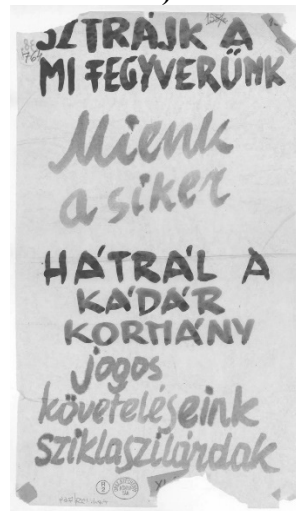 SZTRÁJK A
MI FEGYVERÜNK
Mienk
a siker
HÁTRÁL A
KÁDÁR
KORMÁNY
jogos
követeléseink
sziklaszilárdak